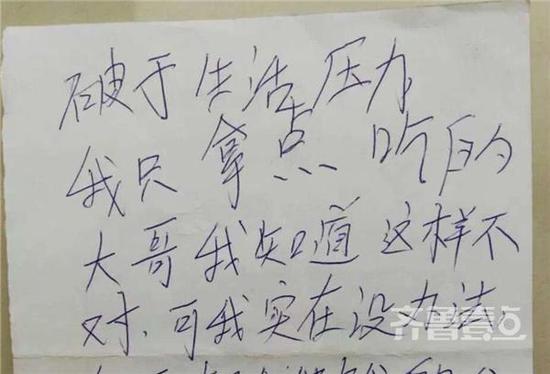 破于生活压力
我只拿点吃的
大哥我知道这样不
对、可我实在没办法。
齐鲁壹点